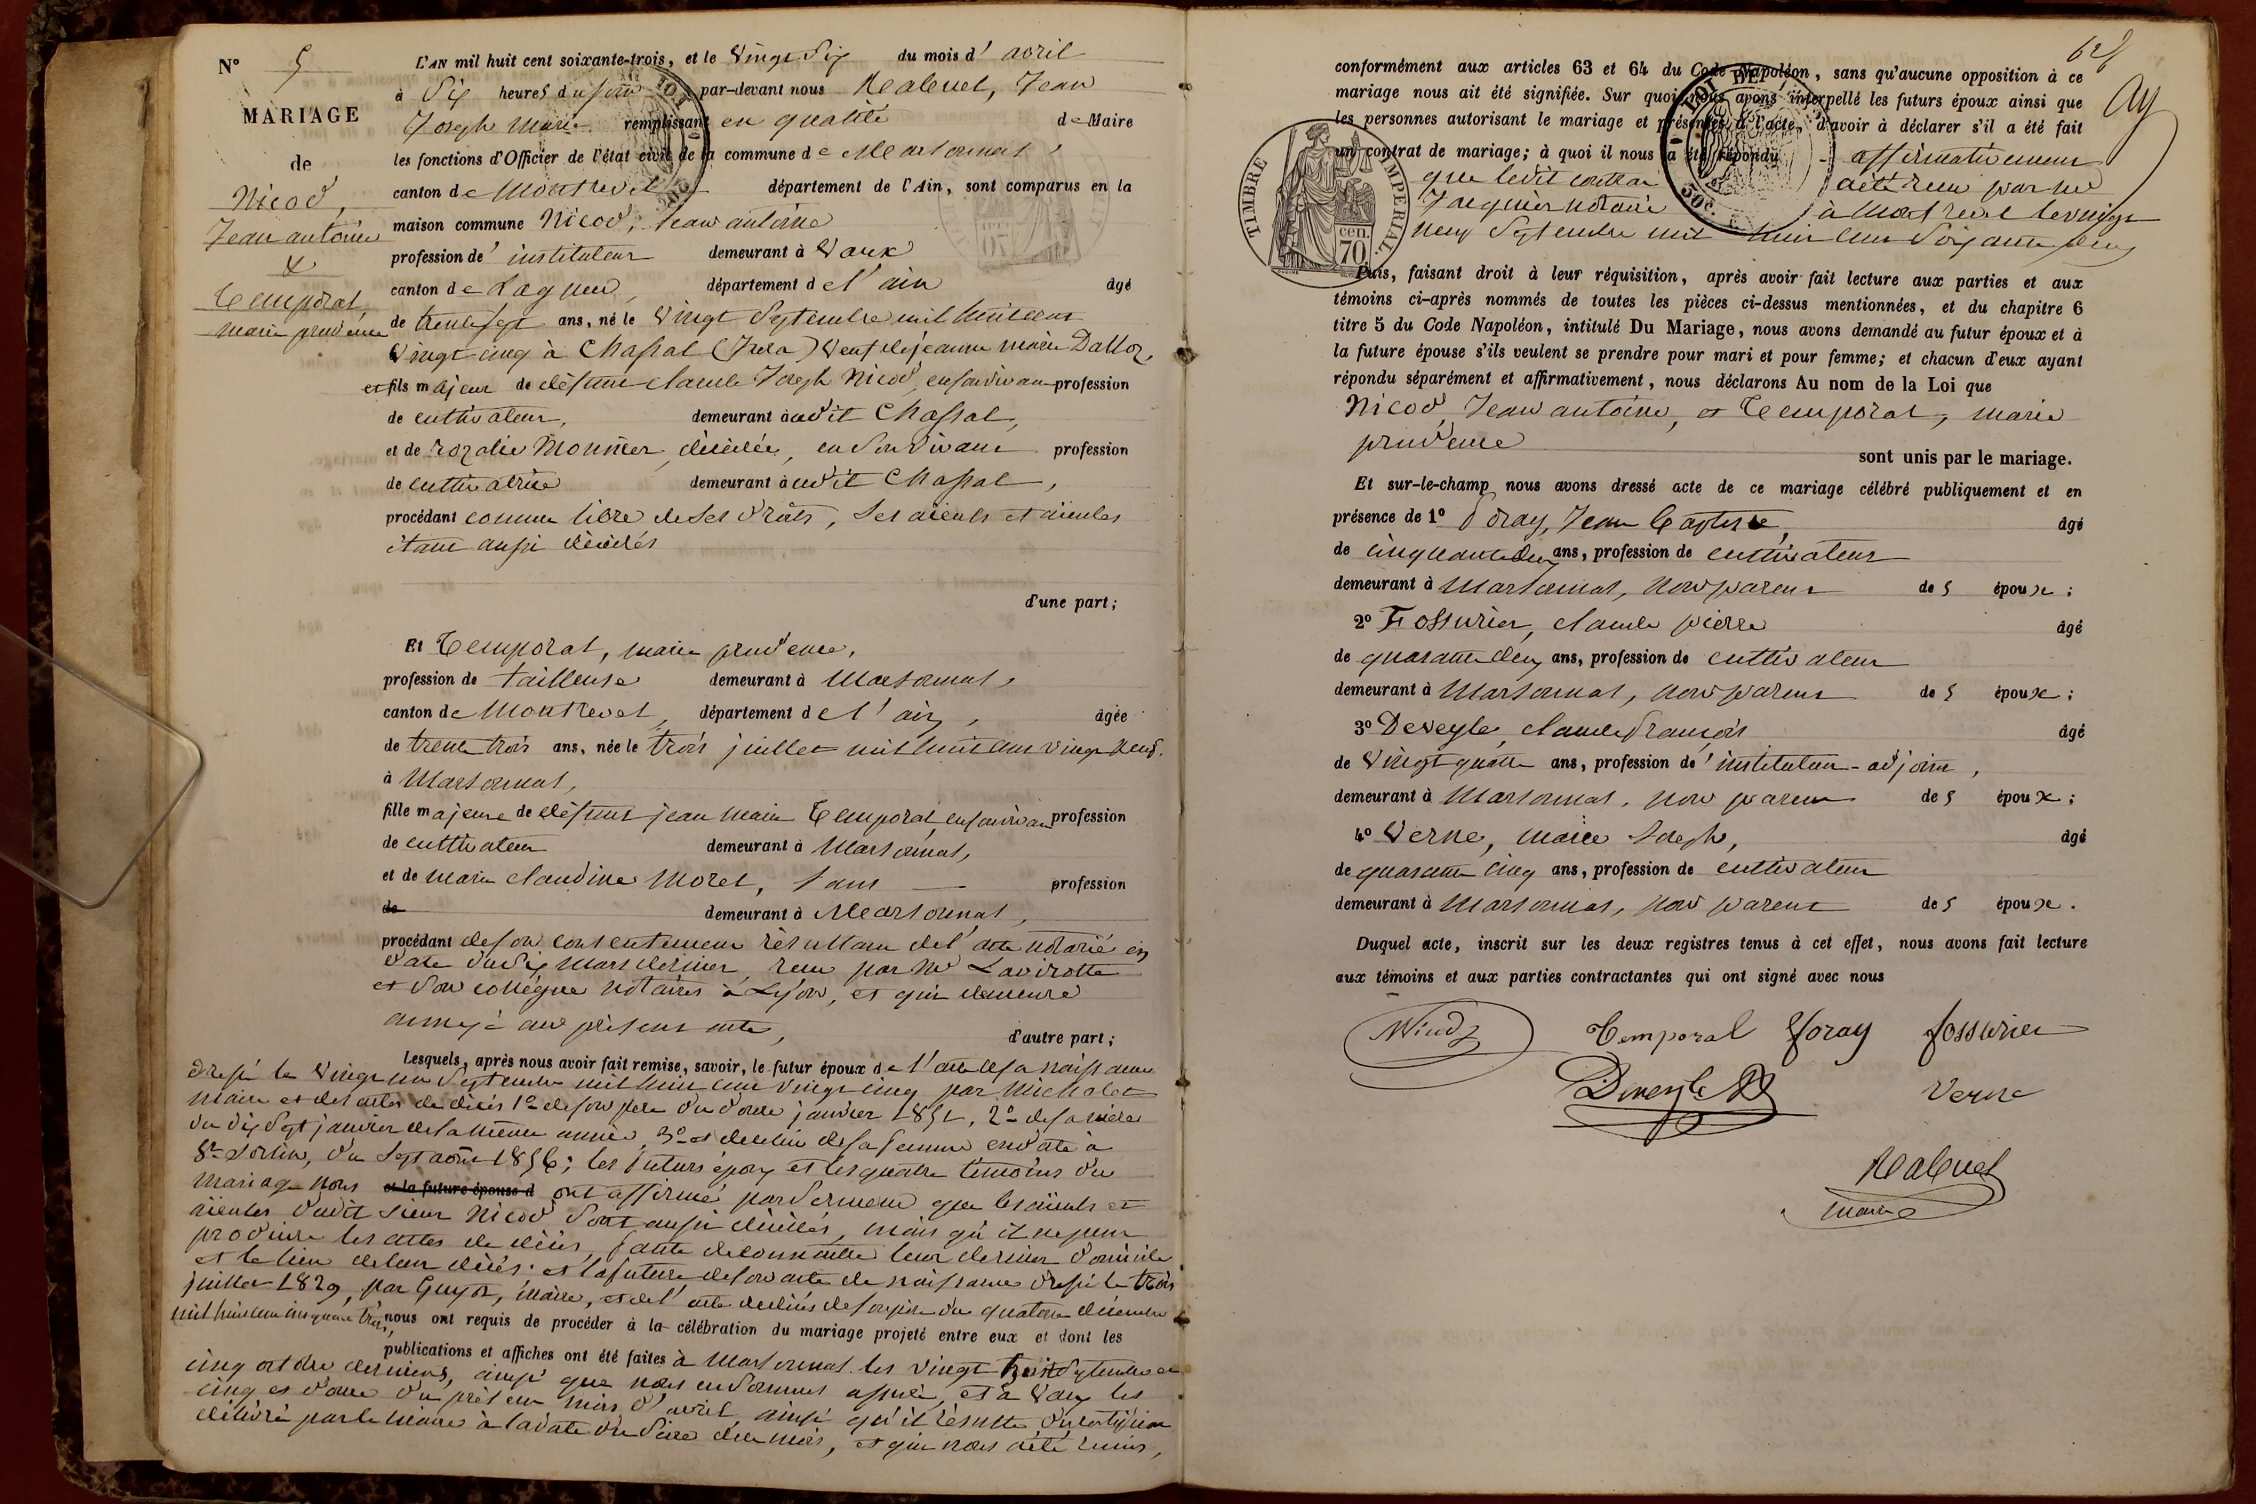 N° 5
MARIAGE
de
Nicod,
Jean antoine
&
Temporal,
marie prudence
L'AN mil huit cent soixante-trois, et le vingt six du mois d'avril
à six heures du soir par-devant nous Malcuel, Jean
Joseph Marie remplissant en qualité de Maire
les fonctions d'Officier de l'état civil de la commune de Marsonnas,
canton de Montrevel département de l'Ain, sont comparus en la
maison commune Nicod, Jean antoine
profession d'instituteur demeurant à Vaux
canton de Lagnieu, département de l'ain âgé
de trente sept ans, né le vingt Septembre mil huit cent
vingt cinq à Chassal (Jura) veuf de jeanne marie Dalloz,
et fils majeur de défunt claude Joseph Nicod, en son vivant profession
de cultivateur, demeurant audit Chassal,
et de rozalie Monnier, décédée, en son vivant profession
de cultivatrice demeurant audit Chassal,
procédant comme libre de ses droits, ses aïeuls et aïeules
étant aussi décédés
d'une part;
Et Temporal, marie prudence,
profession de tailleuse demeurant à Marsonnas,
canton de Montrevel, département de l'ain, âgée
de trente trois ans, née le trois juillet mil huit cent vingt neuf.
à Marsonnas,
fille majeure de défunt jean marie Temporal, en son vivant profession
de cultivateur demeurant à Marsonnas,
et de marie claudine Morel, sans profession
de demeurant à Marsonnas,
procédant de son consentement résultant de l'acte notarié en
date du dix mars dernier, reçu par Me Lavirotte
et son collègue notaires à Lyon, et qui demeure
annexé au présent acte, d'autre part;
Lesquels, après nous avoir fait remise, savoir, le futur époux de l'acte de sa naissance
dressé le vingt un Septembre mil huit cent vingt cinq par Michalet
maire et des actes de décès 1° de son père du douze janvier 1851, 2° de sa mère
du dix Sept janvier de la même année, 3° et de celui de sa femme en date à
St Sorlin, du Sept août 1856; les futurs époux et les quatre témoins du
mariage nous et la future épouse d ont affirmé par serment que les aïeuls et
aïeules dudit sieur Nicod sont aussi décédés, mais qu'il ne peut
produire les actes de décès, faute de connaître leur dernier domicile
et le lieu de leur décès; et la future de son acte de naissance dressé le trois
juillet 1829, par Guyot, maire, et de l'acte de décès de son père du quatorze décembre
mil huit cent cinquante trois, nous ont requis de procéder à la célébration du mariage projeté entre eux et dont les
publications et affiches ont été faites à Marsonnas les vingt huit Septembre et
cinq octobre derniers, ainsi que nous en sommes assuré, et à Vaux les
cinq et douze du présent mois d'avril, ainsi qu'il résulte du certificat
délivré par le maire à la date du seize du mois, et qui nous a été remis,
62
conformément aux articles 63 et 64 du Code Napoléon, sans qu'aucune opposition à ce
mariage nous ait été signifiée. Sur quoi nous avons interpellé les futurs époux ainsi que
les personnes autorisant le mariage et présentes à l'acte, d'avoir à déclarer s'il a été fait
un contrat de mariage; à quoi il nous a été répondu affirmativement
que ledit contrat a été reçu par Me
Jacquier notaire à Montrevel le vingt
neuf Septembre mil huit cent soixante deux
TIMBRE IMPERIAL.
cen.
70
50c.
Puis, faisant droit à leur réquisition, après avoir fait lecture aux parties et aux
témoins ci-après nommés de toutes les pièces ci-dessus mentionnées, et du chapitre 6
titre 5 du Code Napoléon, intitulé Du Mariage, nous avons demandé au futur époux et à
la future épouse s'ils veulent se prendre pour mari et pour femme; et chacun d'eux ayant
répondu séparément et affirmativement, nous déclarons Au nom de la Loi que
Nicod, Jean antoine, et Temporal, marie
prudence
sont unis par le mariage.
Et sur-le-champ nous avons dressé acte de ce mariage célébré publiquement et en
présence de 1° Foray, Jean Baptiste, âgé
de cinquante deux ans, profession de cultivateur
demeurant à Marsonnas, non parent des époux;
2° Fossurier, claude pierre âgé
de quarante deux ans, profession de cultivateur
demeurant à Marsonnas, non parent des époux;
3° Deveyle, claude françois âgé
de vingt quatre ans, profession d'instituteur-adjoint,
demeurant à Marsonnas, non parent des époux;
4° Verne, marie Joseph, âgé
de quarante cinq ans, profession de cultivateur
demeurant à Marsonnas, non parent des époux.
Duquel acte, inscrit sur les deux registres tenus à cet effet, nous avons fait lecture
aux témoins et aux parties contractantes qui ont signé avec nous
Nicod Temporal foray fossurier
Deveyle Verne
Malcuel
maire